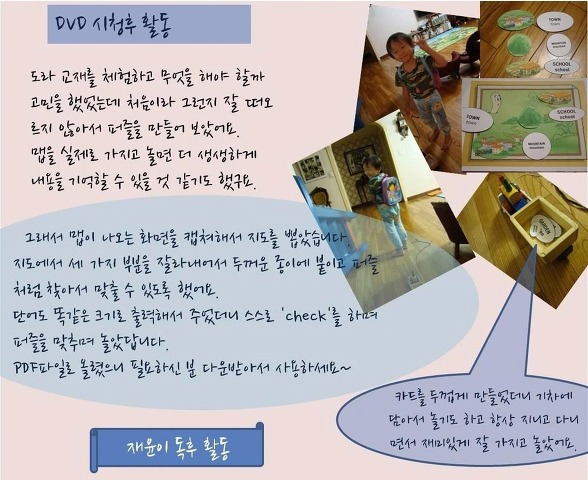 DVD 시청후 활동
도라 교재를 체험하고 무엇을 해야 할까
고민을 했었는데 처음이라 그런지 잘 떠오
르지 않아서 퍼즐을 만들어 보았어요.
맵을 실제로 가지고 놀면 더 생생하게
내용을 기억할 수 있을 것 같기도 했구요.
그래서 맵이 나오는 화면을 캡쳐해서 지도를 뽑았습니다.
지도에서 세 가지 부분을 잘라내어서 두꺼운 종이에 붙이고 퍼즐
처럼 찾아서 맞출 수 있도록 했어요.
단어도 똑같은 크기로 출력해서 주었더니 스스로 'check'를 하며
퍼즐을 맞추며 놀았답니다.
PDF파일로 올렸으니 필요하신 분 다운받아서 사용하세요~
재윤이 독후 활동
카드를 두껍게 만들었더니 기차에
담아서 놀기도 하고 항상 지니고 다니
면서 재미있게 잘 가지고 놀았어요.
TOWN
town
MOUNTAIN
mountain
SCHOOL
school
TOWN
town
SCHOOL
school
MOUNTAIN
mountain